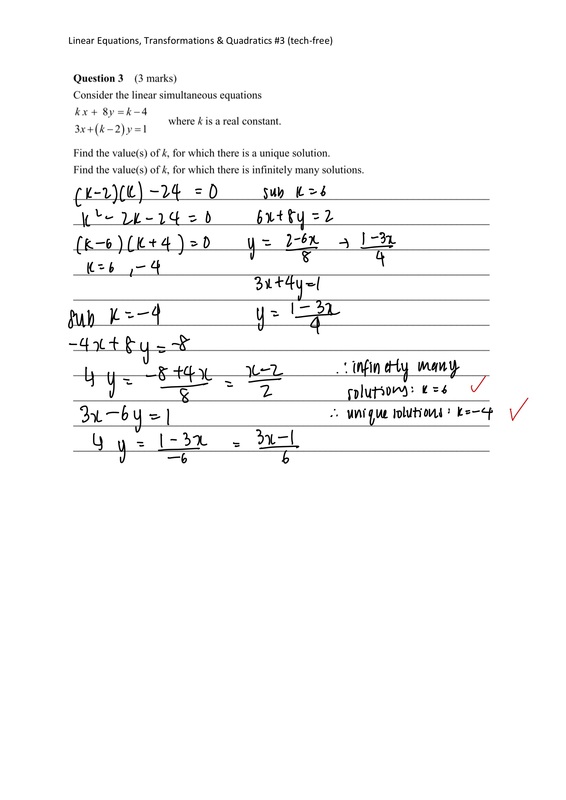 Linear Equations, Transformations & Quadratics #3 (tech-free)
Question 3 (3 marks)
Consider the linear simultaneous equations
kx + 8y = k − 4
3x + (k − 2) y = 1
where k is a real constant.
Find the value(s) of k, for which there is a unique solution.
Find the value(s) of k, for which there is infinitely many solutions.
(k-2)(k) - 24 = 0
k² - 2k - 24 = 0
(k-6)(k+4) = 0
k = 6, -4
sub k = -4
-4x + 8y = -8
↳ y = (-8+4x)/8 = (x-2)/2
3x - 6y = 1
↳ y = (1-3x)/-6 = (3x-1)/6
sub k = 6
6x + 8y = 2
y = (2-6x)/8 → (1-3x)/4
3x + 4y = 1
y = (1-3x)/4
∴ infinetly many
solutions: k = 6 ✓
∴ unique solutions: k = -4 ✓